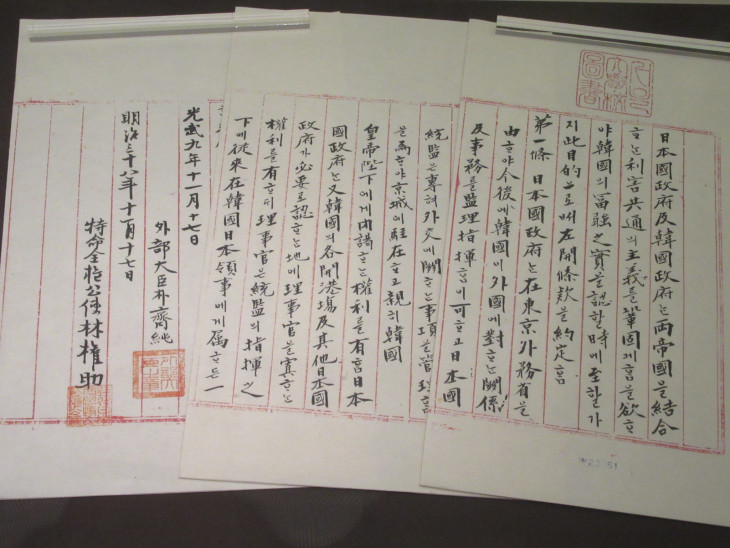 日本國政府及韓國政府ᄂᆞᆫ 兩帝國을 結合
ᄒᆞᄂᆞᆫ 利害共通의 主義를 鞏固케 홈을 欲ᄒᆞ
야 韓國의 富强之實을 認ᄒᆞᆯ 時에 至ᄒᆞᆯ가
지 此目的으로ᄡᅥ 左開條款을 約定홈
第一條 日本國政府ᄂᆞᆫ 在東京外務省을
由ᄒᆞ야 今後에 韓國이 外國에 對ᄒᆞᄂᆞᆫ 關係
及事務를 監理指揮홈이 可ᄒᆞ고 日本國
統監은 專혀 外交에 關ᄒᆞᄂᆞᆫ 事項을 管理홈
을 爲ᄒᆞ야 京城에 駐在ᄒᆞ고 親히 韓國
皇帝陛下에게 內謁ᄒᆞᄂᆞᆫ 權利를 有홈 日本
國政府ᄂᆞᆫ 又韓國의 各開港場及其他日本國
政府가 必要로 認ᄒᆞᄂᆞᆫ 地에 理事官을 寘ᄒᆞᄂᆞᆫ
權利를 有ᄒᆞ되 理事官은 統監의 指揮之
下에 從來 在韓國日本領事에게 屬ᄒᆞ든 一
光武九年十一月十七日
外部大臣 朴齊純
明治三十八年十一月十七日
特命全權公使 林權助